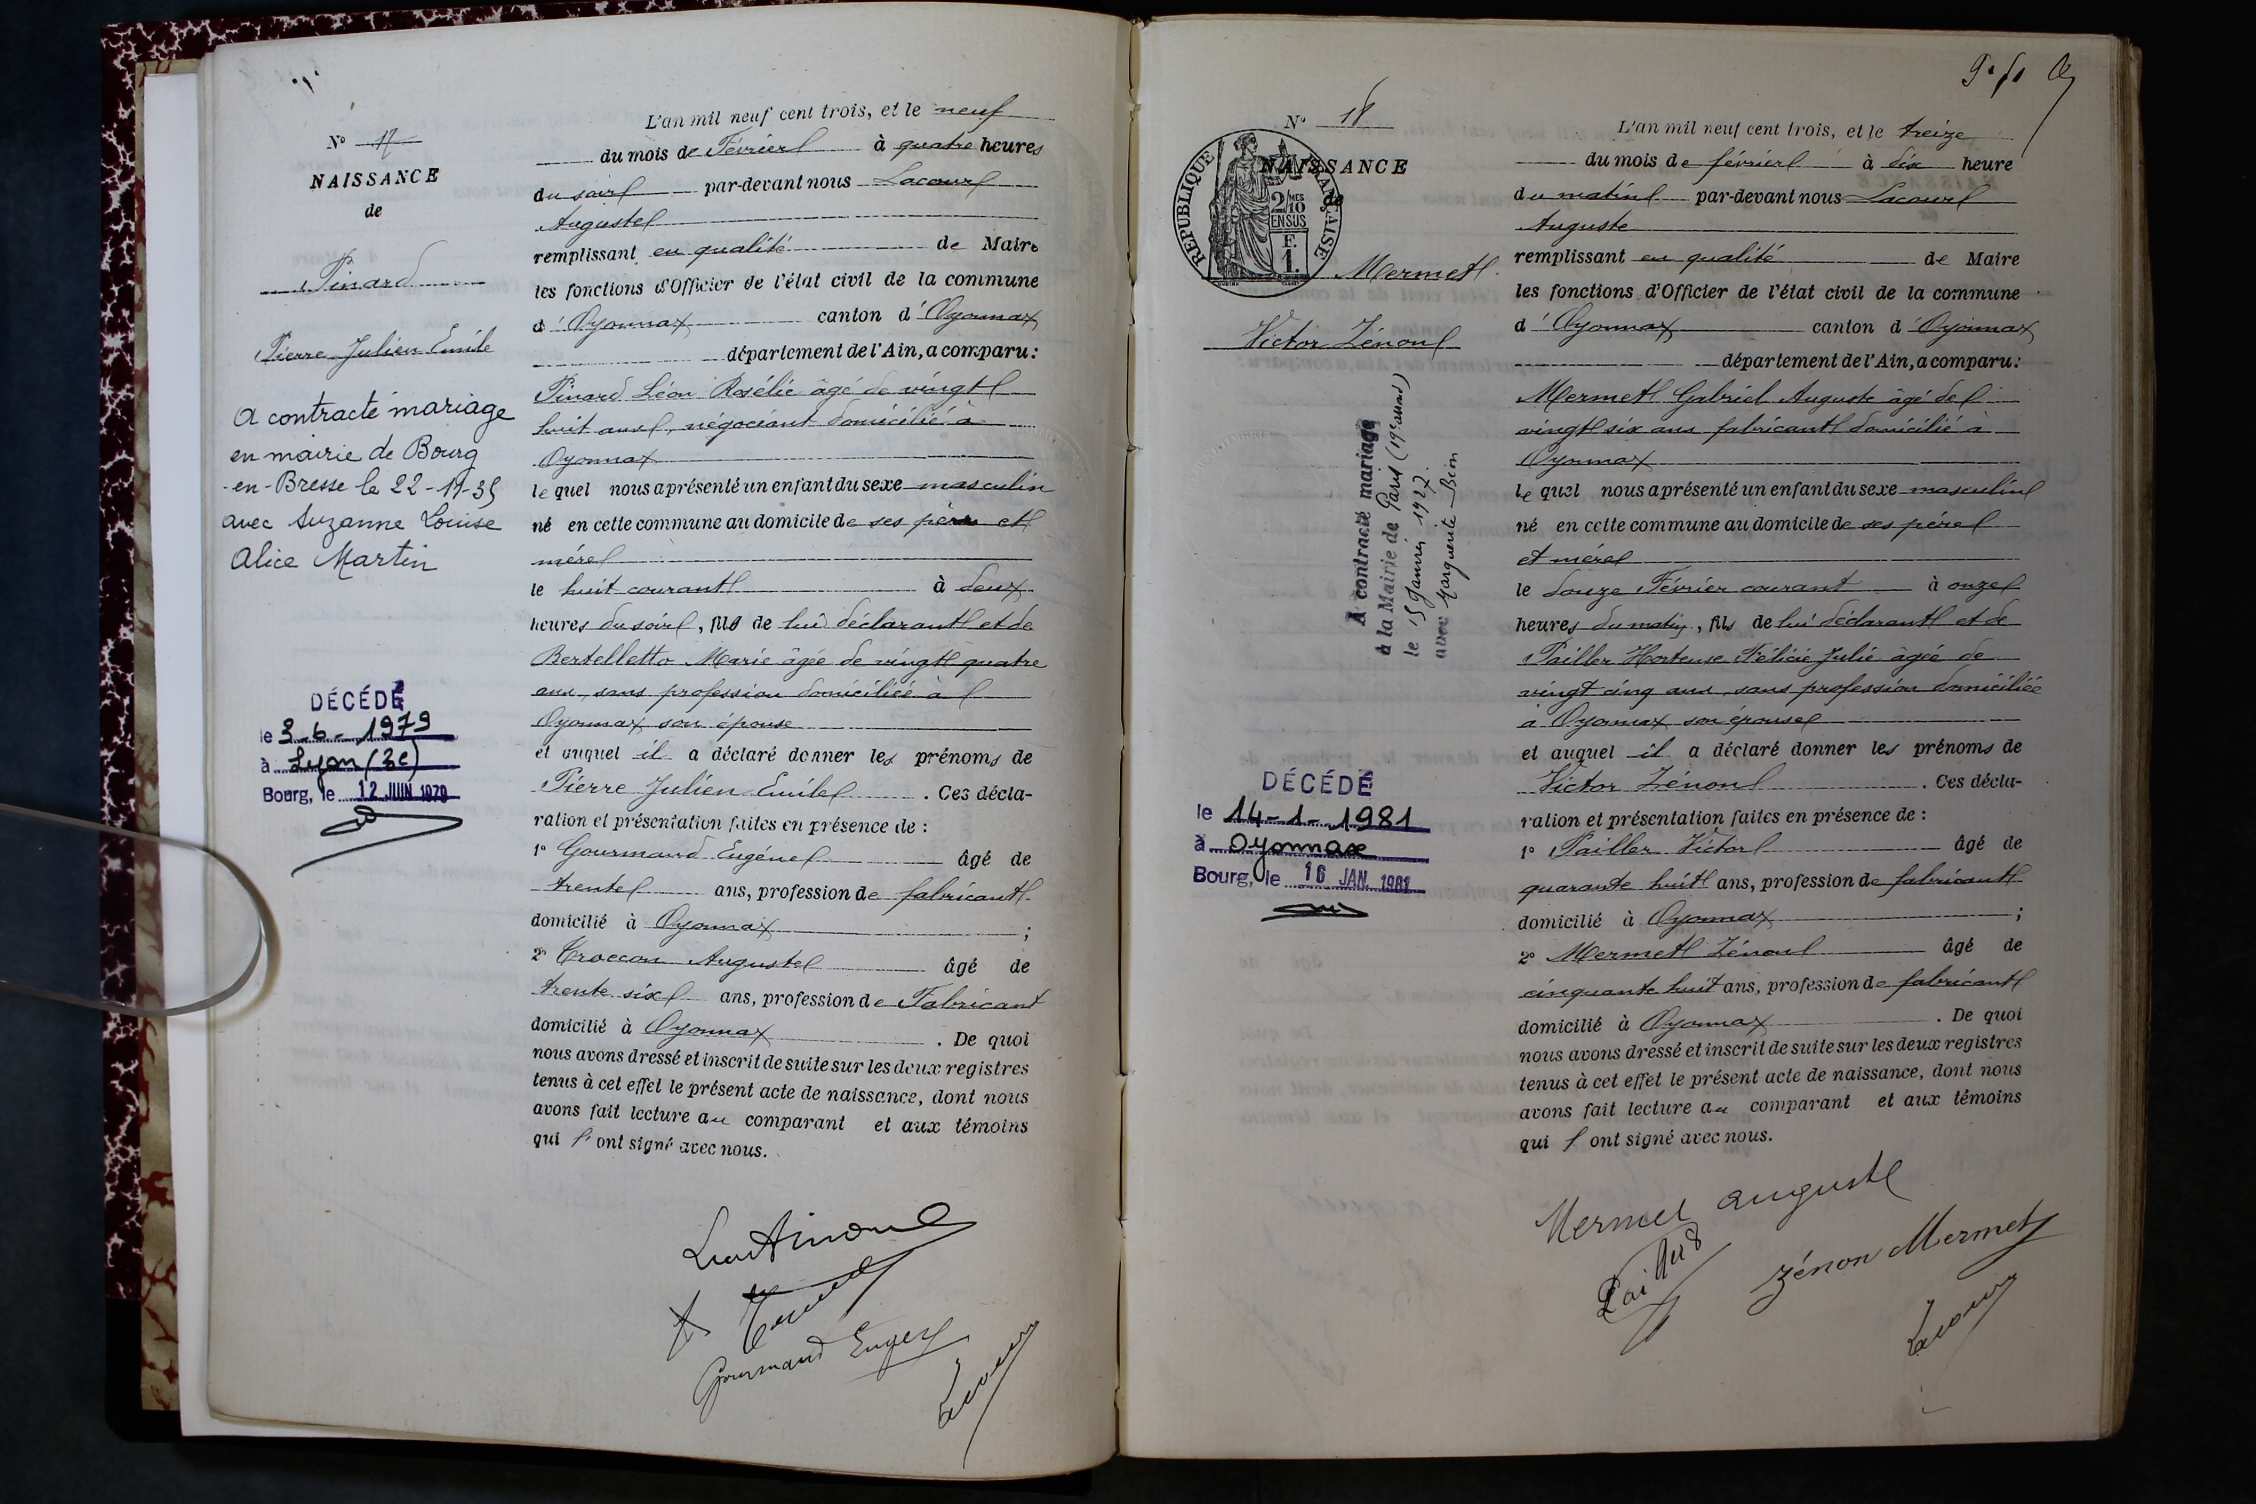 N° 17
NAISSANCE
de
Pinard
Pierre Julien Emile
a contracté mariage
en mairie de Bourg
-en-Bresse le 22-11-35
avec Suzanne Louise
Alice Martin
DÉCÉDÉ
le 3-6-1979
à Lyon (3e)
Bourg, le 12 JUIN 1979
L'an mil neuf cent trois, et le neuf
du mois de Février à quatre heures
du soir par-devant nous Lacour
Auguste
remplissant en qualité de Maire
les fonctions d'Officier de l'état civil de la commune
d'Oyonnax canton d'Oyonnax
département de l'Ain, a comparu:
Pinard Léon Rosélie âgé de vingt
huit ans, négociant domicilié à
Oyonnax
lequel nous a présenté un enfant du sexe masculin
né en cette commune au domicile de ses père et
mère
le huit courant à deux
heures du soir, fils de lui déclarant et de
Bertelletto Marie âgée de vingt quatre
ans, sans profession domiciliée à
Oyonnax son épouse
et auquel il a déclaré donner les prénoms de
Pierre Julien Emile. Ces décla-
ration et présentation faites en présence de :
1° Gourmand Eugène âgé de
trente ans, profession de fabricant
domicilié à Oyonnax ;
2° Troccon Auguste âgé de
trente six ans, profession de Fabricant
domicilié à Oyonnax. De quoi
nous avons dressé et inscrit de suite sur les deux registres
tenus à cet effet le présent acte de naissance, dont nous
avons fait lecture au comparant et aux témoins
qui l'ont signé avec nous.
Gourmand Eugène
Lacour
N° 18
NAISSANCE
de
RÉPUBLIQUE FRANÇAISE
2/10 MES
EN SUS
F.
1.
Mermet
Victor Zénon
A contracté mariage
à la Mairie de Paris (19e arrond)
le 15 Janvier 1927
avec Marguerite Bion
DÉCÉDÉ
le 14-1-1981
à Oyonnax
Bourg, le 16 JAN. 1981
L'an mil neuf cent trois, et le treize
du mois de février à dix heure
du matin par-devant nous Lacour
Auguste
remplissant en qualité de Maire
les fonctions d'Officier de l'état civil de la commune
d'Oyonnax canton d'Oyonnax
département de l'Ain, a comparu:
Mermet Gabriel Auguste âgé de
vingt six ans fabricant domicilié à
Oyonnax
lequel nous a présenté un enfant du sexe masculin
né en cette commune au domicile de ses père
et mère
le douze Février courant à onze
heures du matin, fils de lui déclarant et de
Pailler Hortense Félicie Julie âgée de
vingt cinq ans, sans profession domiciliée
à Oyonnax son épouse
et auquel il a déclaré donner les prénoms de
Victor Zénon. Ces décla-
ration et présentation faites en présence de :
1° Pailler Victor âgé de
quarante huit ans, profession de fabricant
domicilié à Oyonnax ;
2° Mermet Zénon âgé de
cinquante huit ans, profession de fabricant
domicilié à Oyonnax. De quoi
nous avons dressé et inscrit de suite sur les deux registres
tenus à cet effet le présent acte de naissance, dont nous
avons fait lecture au comparant et aux témoins
qui l'ont signé avec nous.
Mermet Auguste
Zénon Mermet
Lacour